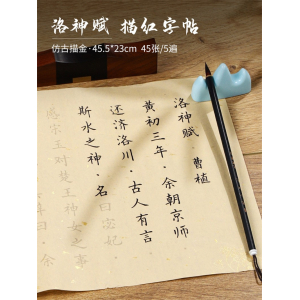 洛神赋 描红字帖
仿古描金·45.5*23cm 45张/5遍
洛神赋·曹植
黄初三年·余朝京师
还济洛川·古人有言
斯水之神·名曰宓妃
感宋玉对楚王神女之事